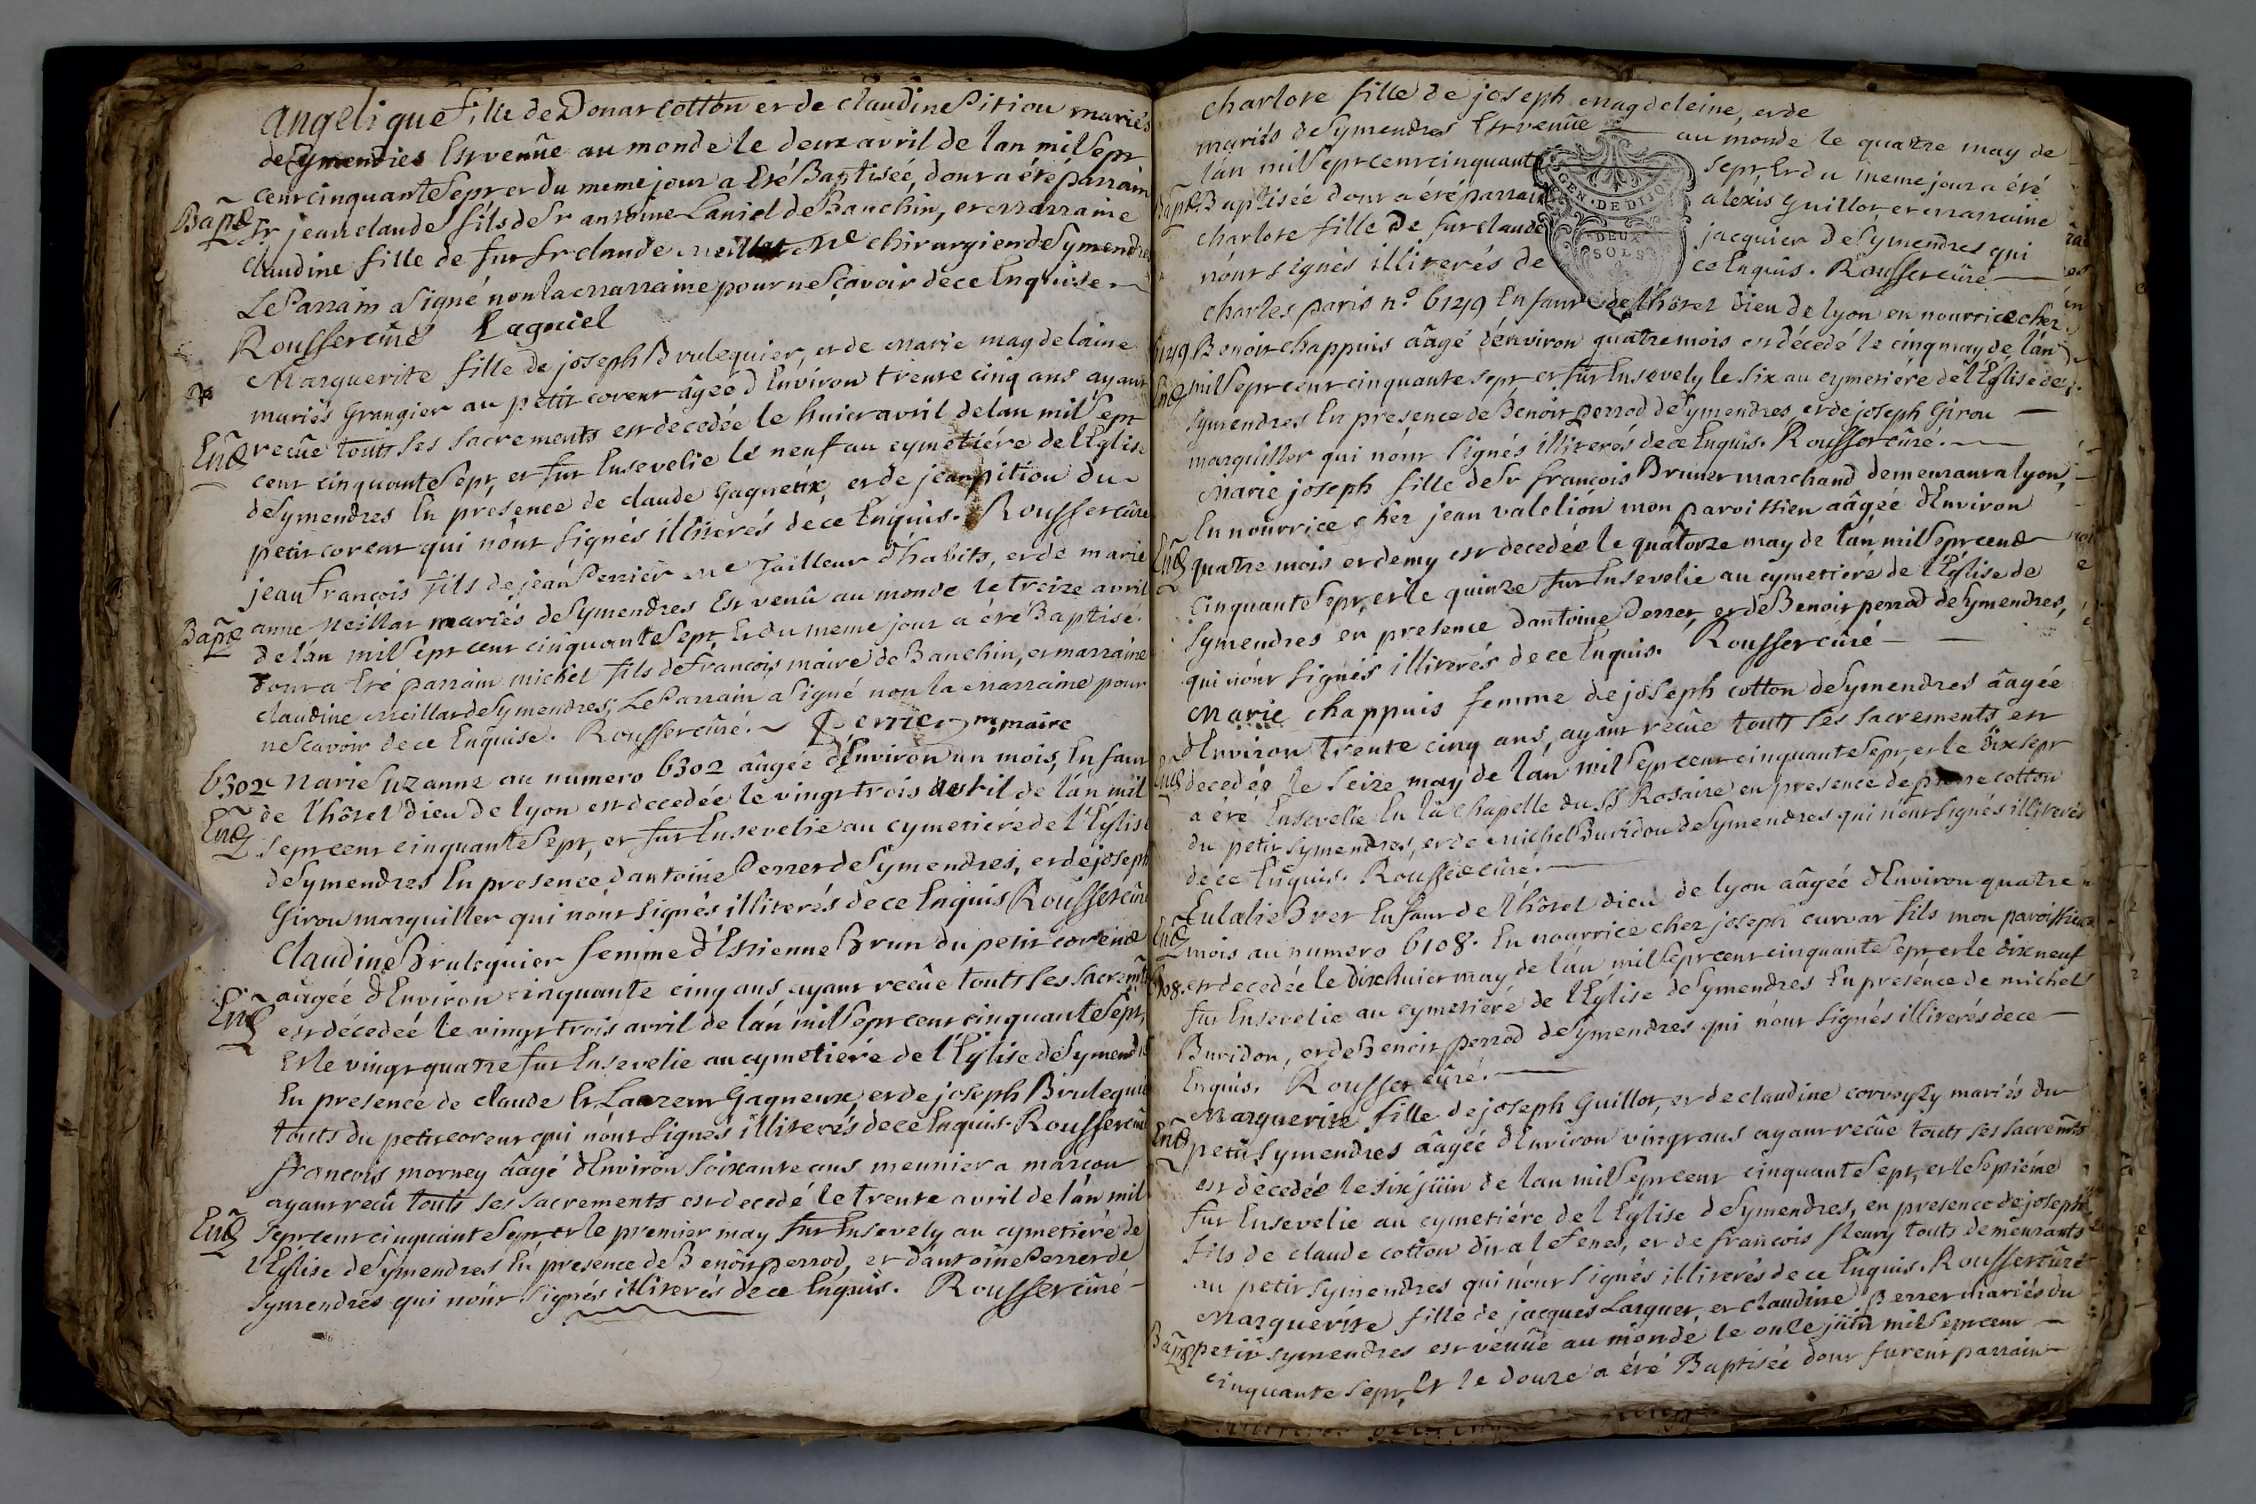 angelique fille de Donat cotton et de claudine Pitiou mariés
de Symendres Est venüe au monde le deux avril de lan mil Sept
cent cinquante Sept et du meme jour a Eté Baptisée, dont a été parrain
Bapte Sr jean claude fils de Sr antoine Laniel de Banchin, et marraine
claudine fille de fut Sr claude meillat Me chirurgien de Symendres
Le Parrain a Signé non la marraine pour ne Sçavoir de ce Enquise.
Rousset curé Lagniel
Marguerite fille de joseph Brulequier, et de marie magdelaine
mariés Grangier au petit corent âgée d'Environ trente cinq ans ayant
Ent recüe touts ses sacrements est decedée le huict avril de lan mil Sept
cent cinquante Sept, et fut Ensevelie le neuf au cymetiére de l'Eglise
de Symendres En presence de claude Gagneux, et de jean pitiou du
petit corent qui n'ont Signés illiterés de ce Enquis. Rousset curé
jean francois fils de jean Perrier me Tailleur d'habits, et de marie
Bapte anne Meillat mariés de Symendres Est venû au monde le treize avril
de l'an mil Sept cent cinquante Sept, Et du meme jour a été Baptisé.
dont a Eté parrain michel fils de francois maire de Banchin, et marraine
claudine Meillat de Symendres; Le Parrain a Signé non la marraine pour
ne Scavoir de ce Enquise. Rousset curé. Perrier m maire
6302 Marie Suzanne au numero 6302 aâgée d'Environ un mois, Enfant
Ent de l'hôtel dieu de lyon est decedée le vingt trois avril de l'an mil
Sept cent cinquante Sept, et fut Ensevelie au cymetiére de l'Eglise
de Symendres En presence d'antoine Perret de Symendres, et de joseph
Girou marguiller qui n'ont Signés illiterés de ce Enquis Rousset curé
Claudine Brulequier femme d'Estienne Brun du petit corent
aâgée d'Environ cinquante cinq ans ayant recüe touts ses sacremts
Ent est décedeé le vingt trois avril de l'an mil Sept cent cinquante Sept,
Et le vingt quatre fut Ensevelie au cymetiére de l'Eglise de Symendres
En presence de claude Et Laurent Gagneux, et de joseph Brulequier
touts du petit corent qui n'ont Signés illiterés de ce Enquis. Rousset curé
francois morney âagé d'Environ soixante ans meunier a marcou
ayant recû touts ses sacrements est decedé le trente avril de l'an mil
Ent Sept cent cinquante Sept et le premier may fut Ensevely au cymetiére de
l'Eglise de Symendres En presence de Benoit perrod, et d'antoine Perret de
Symendres qui n'ont Signés illiterés de ce Enquis. Rousset curé
charlote fille de joseph magdeleine, et de
mariés de Symendres Est venüe au monde le quatre may de
l'an mil Sept cent cinquante sept, Et du meme jour a été
Bapte Baptisée dont a été parrain alexis Guillot et marraine
charlote fille de fut claude jacquier de Symendres qui
n'ont signés illiterés de ce Enquis. Rousset curé
GEN. DE DIJON
DEUX
SOLS
charles paris n.o 6149 Enfant de l'hôtel dieu de lyon en nourrice chez
6149 Benoit chappuis aâgé d'environ quatre mois est décedé le cinq may de l'an
Ent mil Sept cent cinquante sept, et fut Ensevely le six au cymetiére de l'Eglise de
Symendres En presence de Benoit perrod de Symendres, et de joseph Girou
marguiller qui n'ont Signés illiterés de ce Enquis. Rousset curé.
Marie joseph fille de Sr francois Brunet marchand demeurant a lyon,
En nourrice chez jean valelion mon paroissien aâgée d'Environ
Ent quatre mois et demy est decedée le quatorze may de l'an mil Sept cent
cinquante Sept, et le quinze fut Ensevelie au cymetiéré de l'Église de
Symendres en presence d'antoine Perret, et de Benoit perrod de Symendres,
qui n'ont Signés illiterés de ce Enquis. Rousset curé
Marie chappuis femme de joseph cotton de Symendres âagée
d'Environ trente cinq ans, ayant recüe touts ses sacrements est
Ent decedée le seize may de l'an mil Sept cent cinquante Sept, et le dix sept
a été Ensevelie En la chapelle du St Rosaire en presence de pierre cotton
du petit Symendres, et de michel Buridon de Symendres qui n'ont Signés illiterés
de ce Enquis. Rousset curé.
Eulalie Bret Enfant de l'hôtel dieu de lyon aâgée d'Environ quatre
Ent mois au numero 6108. En nourrice chez joseph curvat fils mon paroissien
6108. est decedée le dixhuict may de l'an mil Sept cent cinquante Sept et le dix neuf
fut Ensevelie au cymetiéré de l'Eglise de Symendres En presence de michel
Buridon, et de Benoit perrod de Symendres qui n'ont Signés illiterés de ce
Enquis. Rousset curé.
Marguerite fille de joseph Guillot, et de claudine mariés du
Ent petit Symendres âagée d'Environ vingt ans ayant recüe touts ses sacremts
est décedée le six jüin de l'an mil Sept cent cinquante Sept, et le Septiéme
fut Ensevelie au cymetiére de l'Eglise de Symendres, en presence de joseph
fils de claude cotton dit a le Senes, et de francois fleury touts demeurants
au petit Symendres qui n'ont Signés illiterés de ce Enquis. Rousset curé
Marguerite fille de jacques Larguet, et claudine Perret mariés du
Bapte petit Symendres est venüe au monde le onze jüin mil Sept cent
cinquante Sept, Et le douze a été Baptisée dont furent parrain